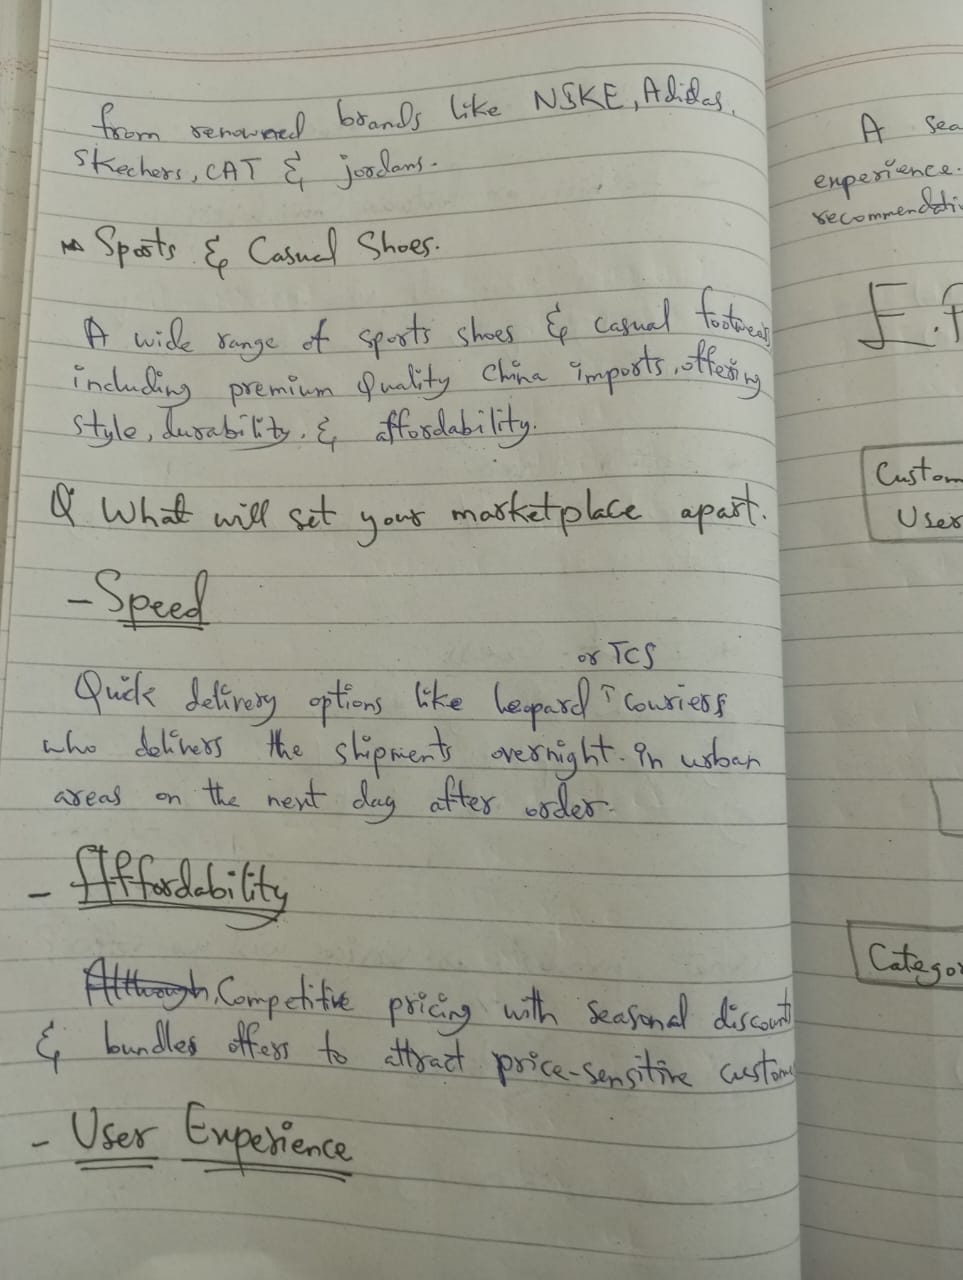 from renowned brands like NIKE, Adidas,
Skechers, CAT & jordans.
Sports & Casual Shoes.
A wide range of sports shoes & casual footwear
including premium Quality China imports, offering
style, durability, & affordability.
Q What will set your marketplace apart.
- Speed
or TCS
Quick delivery options like leopard ↑ couriers
who delivers the shipments overnight. in urban
areas on the next day after order.
- Affordability
Although, Competitive pricing with seasonal discount
& bundles offers to attract price-sensitive custome
- User Experience
A sea
experience.
recommendati
E.
Custom
User
Catego